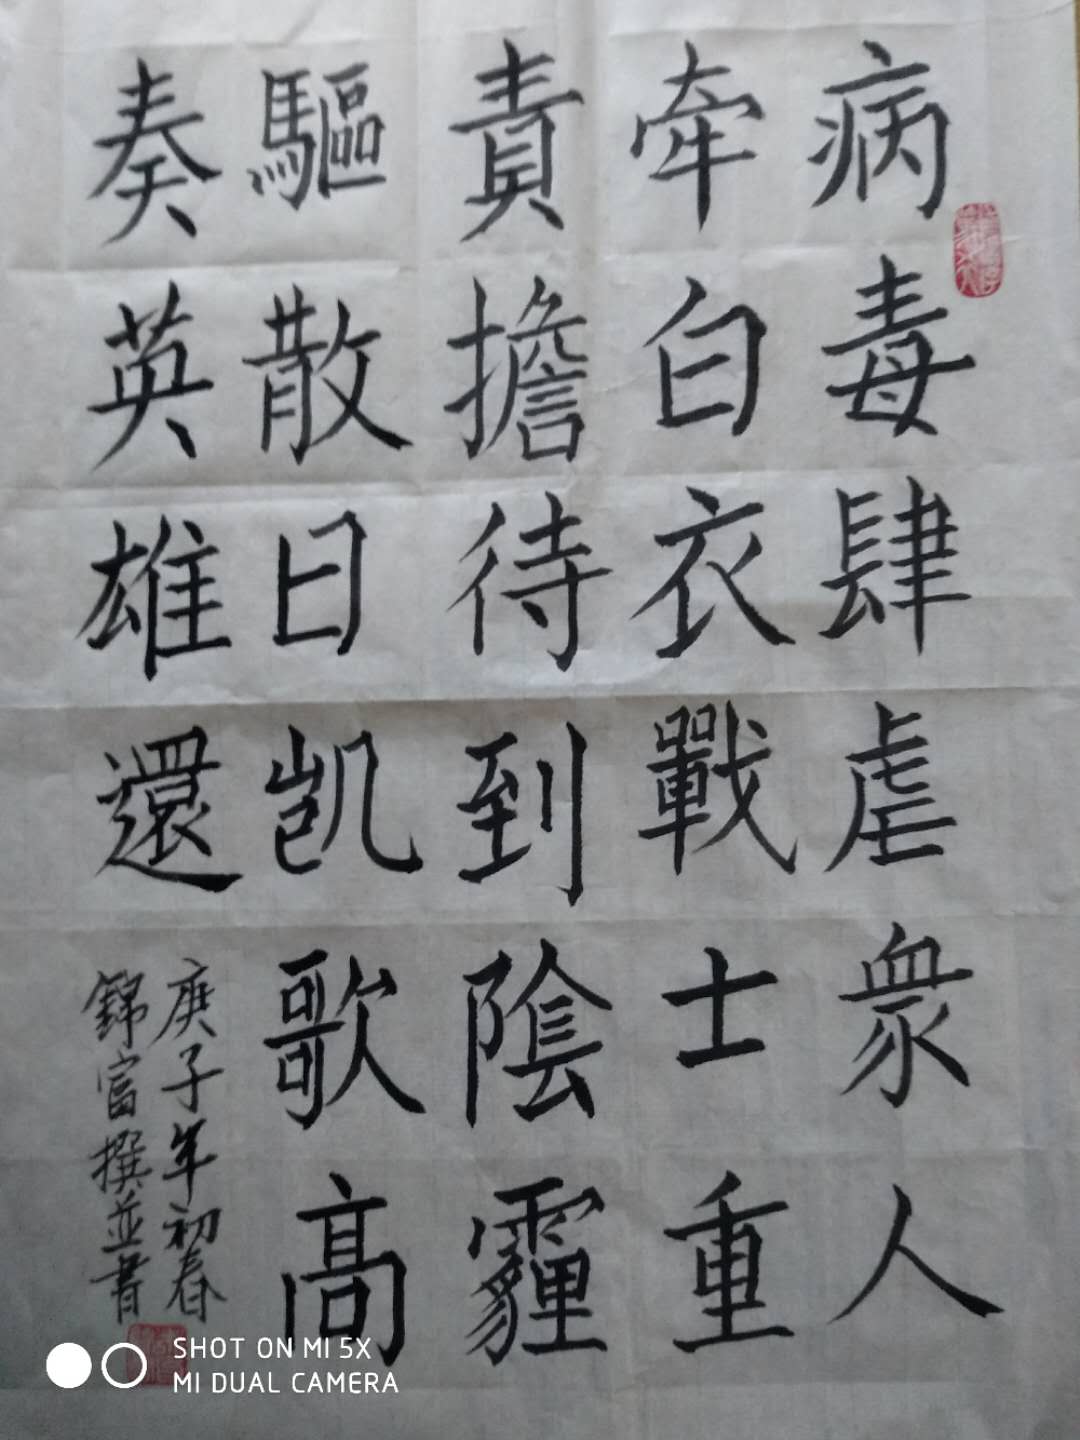 病毒肆虐衆人
牽白衣戰士重
責擔待到陰霾
驅散日凱歌高
奏英雄還
庚子年初春
錦富撰並書
SHOT ON MI 5X
MI DUAL CAMERA